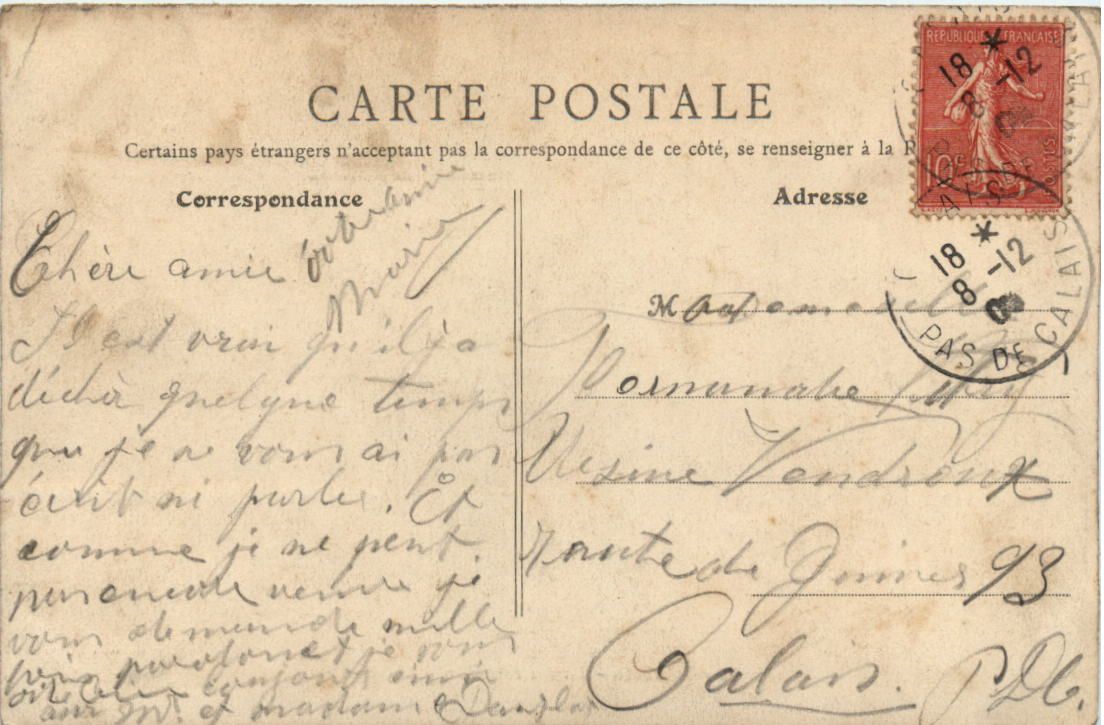 REPUBLIQUE FRANÇAISE
10c
POSTES
18 *
8 -12
CARTE POSTALE
Certains pays étrangers n'acceptant pas la correspondance de ce côté, se renseigner à la
Correspondance
Adresse
18 *
8 -12
PAS DE CALAIS
Chère amie
votre amie
Marie
Il est vrai qu'il y a
déchà quelque temps
que je ne vous ai pas
écrit ni parler. Et
comme je ne peut
pas encore venir je
vous demande mille
fois pardon et je vous
aux Mr. et madame
Mademoiselle
Vendroux
Route de Guines 93
Calais. P.D.C.